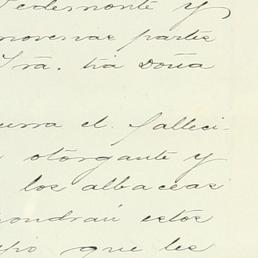 Pedemonte y
novenas partes
Sra. tia Doña
curra el falleci-
otorgante y
los albaceas
pondrán estos
que les